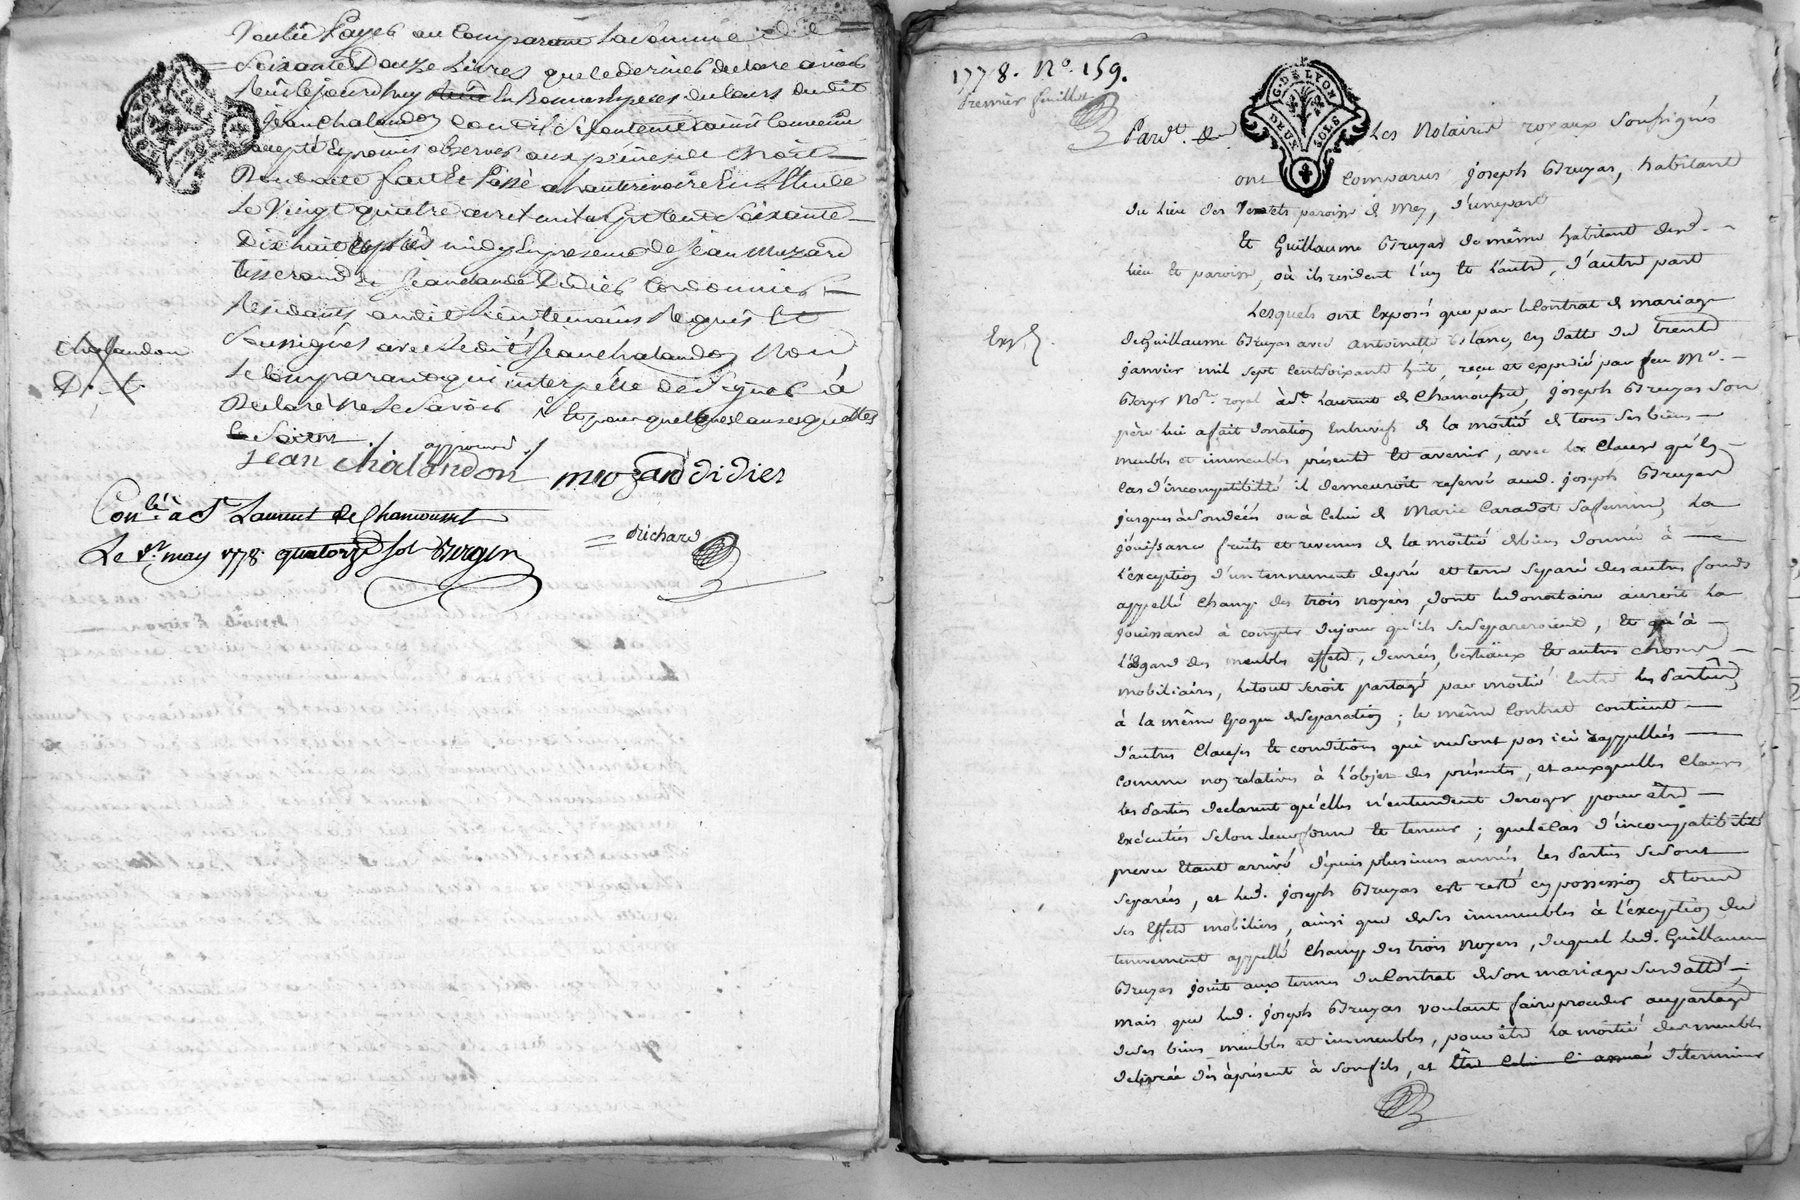 voulu Payer au Comparant La Somme de
Soixante Douze Livres que ce dernier declare avoir
Reçu ce jourdhuy en Bonnes Especes du Cours dudit
Jean Chalandon dont il Se Contente ainsi Convenu
accepté et promis observer aux peines de Droit
Dont acte fait Et Passé a hauterivoire En L'Etude
Le Vingt quatre avril mil Sept Cent Soixante
Dix huit après midy En presence de Jean Muzard
tisserand & Jean Claude Didier Cordonnier
Residants audit Lieu temoins Requis Et
Soussignés avec Ledit Jean Chalandon Non
Le Comparand qui interpellé de Signer à
Declaré Ne Le Savoir
Et pour quelques causes quelles
Soient
approuvé
Jean chalandon muzard didier
Chalandon
Con.lé à St Laurent de Chamousset
Le 1er may 1778. quatorze sol Berger
Richard
G. DE LYON
DEUX SOLS
1778. No. 159.
Premier feuillet
Pardt. Les Notaires royaux Soussignés
ont Comparus joseph Bruyas, habitant
du lieu des paroisse de Mey, d'une part
Et Guillaume Bruyas de même habitant dud.
lieu Et paroisse, où ils resident l'un Et l'autre, d'autre part
Lesquels ont Exposés que par le Contrat de mariage
Exp.
de Guillaume Bruyas avec antoinette Blanc, en datte du trente
janvier mil sept Cent soixante huit, reçu et expedié par feu Me.
Berger Nore. royal à St. Laurent de Chamousset, joseph Bruyas son
père lui a fait donation Entrevifs de la moitié de tous ses biens
meubles et immeubles présents Et avenir, avec la Clause qu'En
Cas d'incompatibilité il demeuroit reservé aud. joseph Bruyas
jusques à son décés ou à Celui de Marie Caradot sa femme, La
jouissance fruits et revenus de la moitié des biens donnés à
l'exception d'un tennement de pré et terre separé des autres fonds
appellé Champ des trois noyers, dont le donataire auroit La
jouissance à compter du jour qu'ils se separeroient, Et qu'à
l'égard des meubles effets, denrées, bestiaux Et autres choses
mobiliaires, le tout seroit partagé par moitié Entre les Parties
à la même Epoque de Separation ; le même Contrat contient
d'autres Clauses Et conditions qui ne sont pas ici rappellées
comme non relatives à l'objet des présentes, et auxquelles Clauses
les Parties declarent qu'elles n'entendent deroger pour être
Exécutées selon leur forme Et teneur ; que le Cas d'incompatibilité
prevu Etant arrivé depuis plusieurs années les Parties se sont
Separées, et led. joseph Bruyas est resté en possession de tous
ses Effets mobiliers, ainsi que de ses immeubles à l'exception du
tennement appellé Champ des trois Noyers, duquel led. Guillaume
Bruyas jouit aux termes du Contrat de son mariage susdatté
mais que led. joseph Bruyas voulant faire proceder au partage
de ses biens meubles et immeubles, pour être la moitié des meubles
delivrée dès àprésent à son fils, et determiner